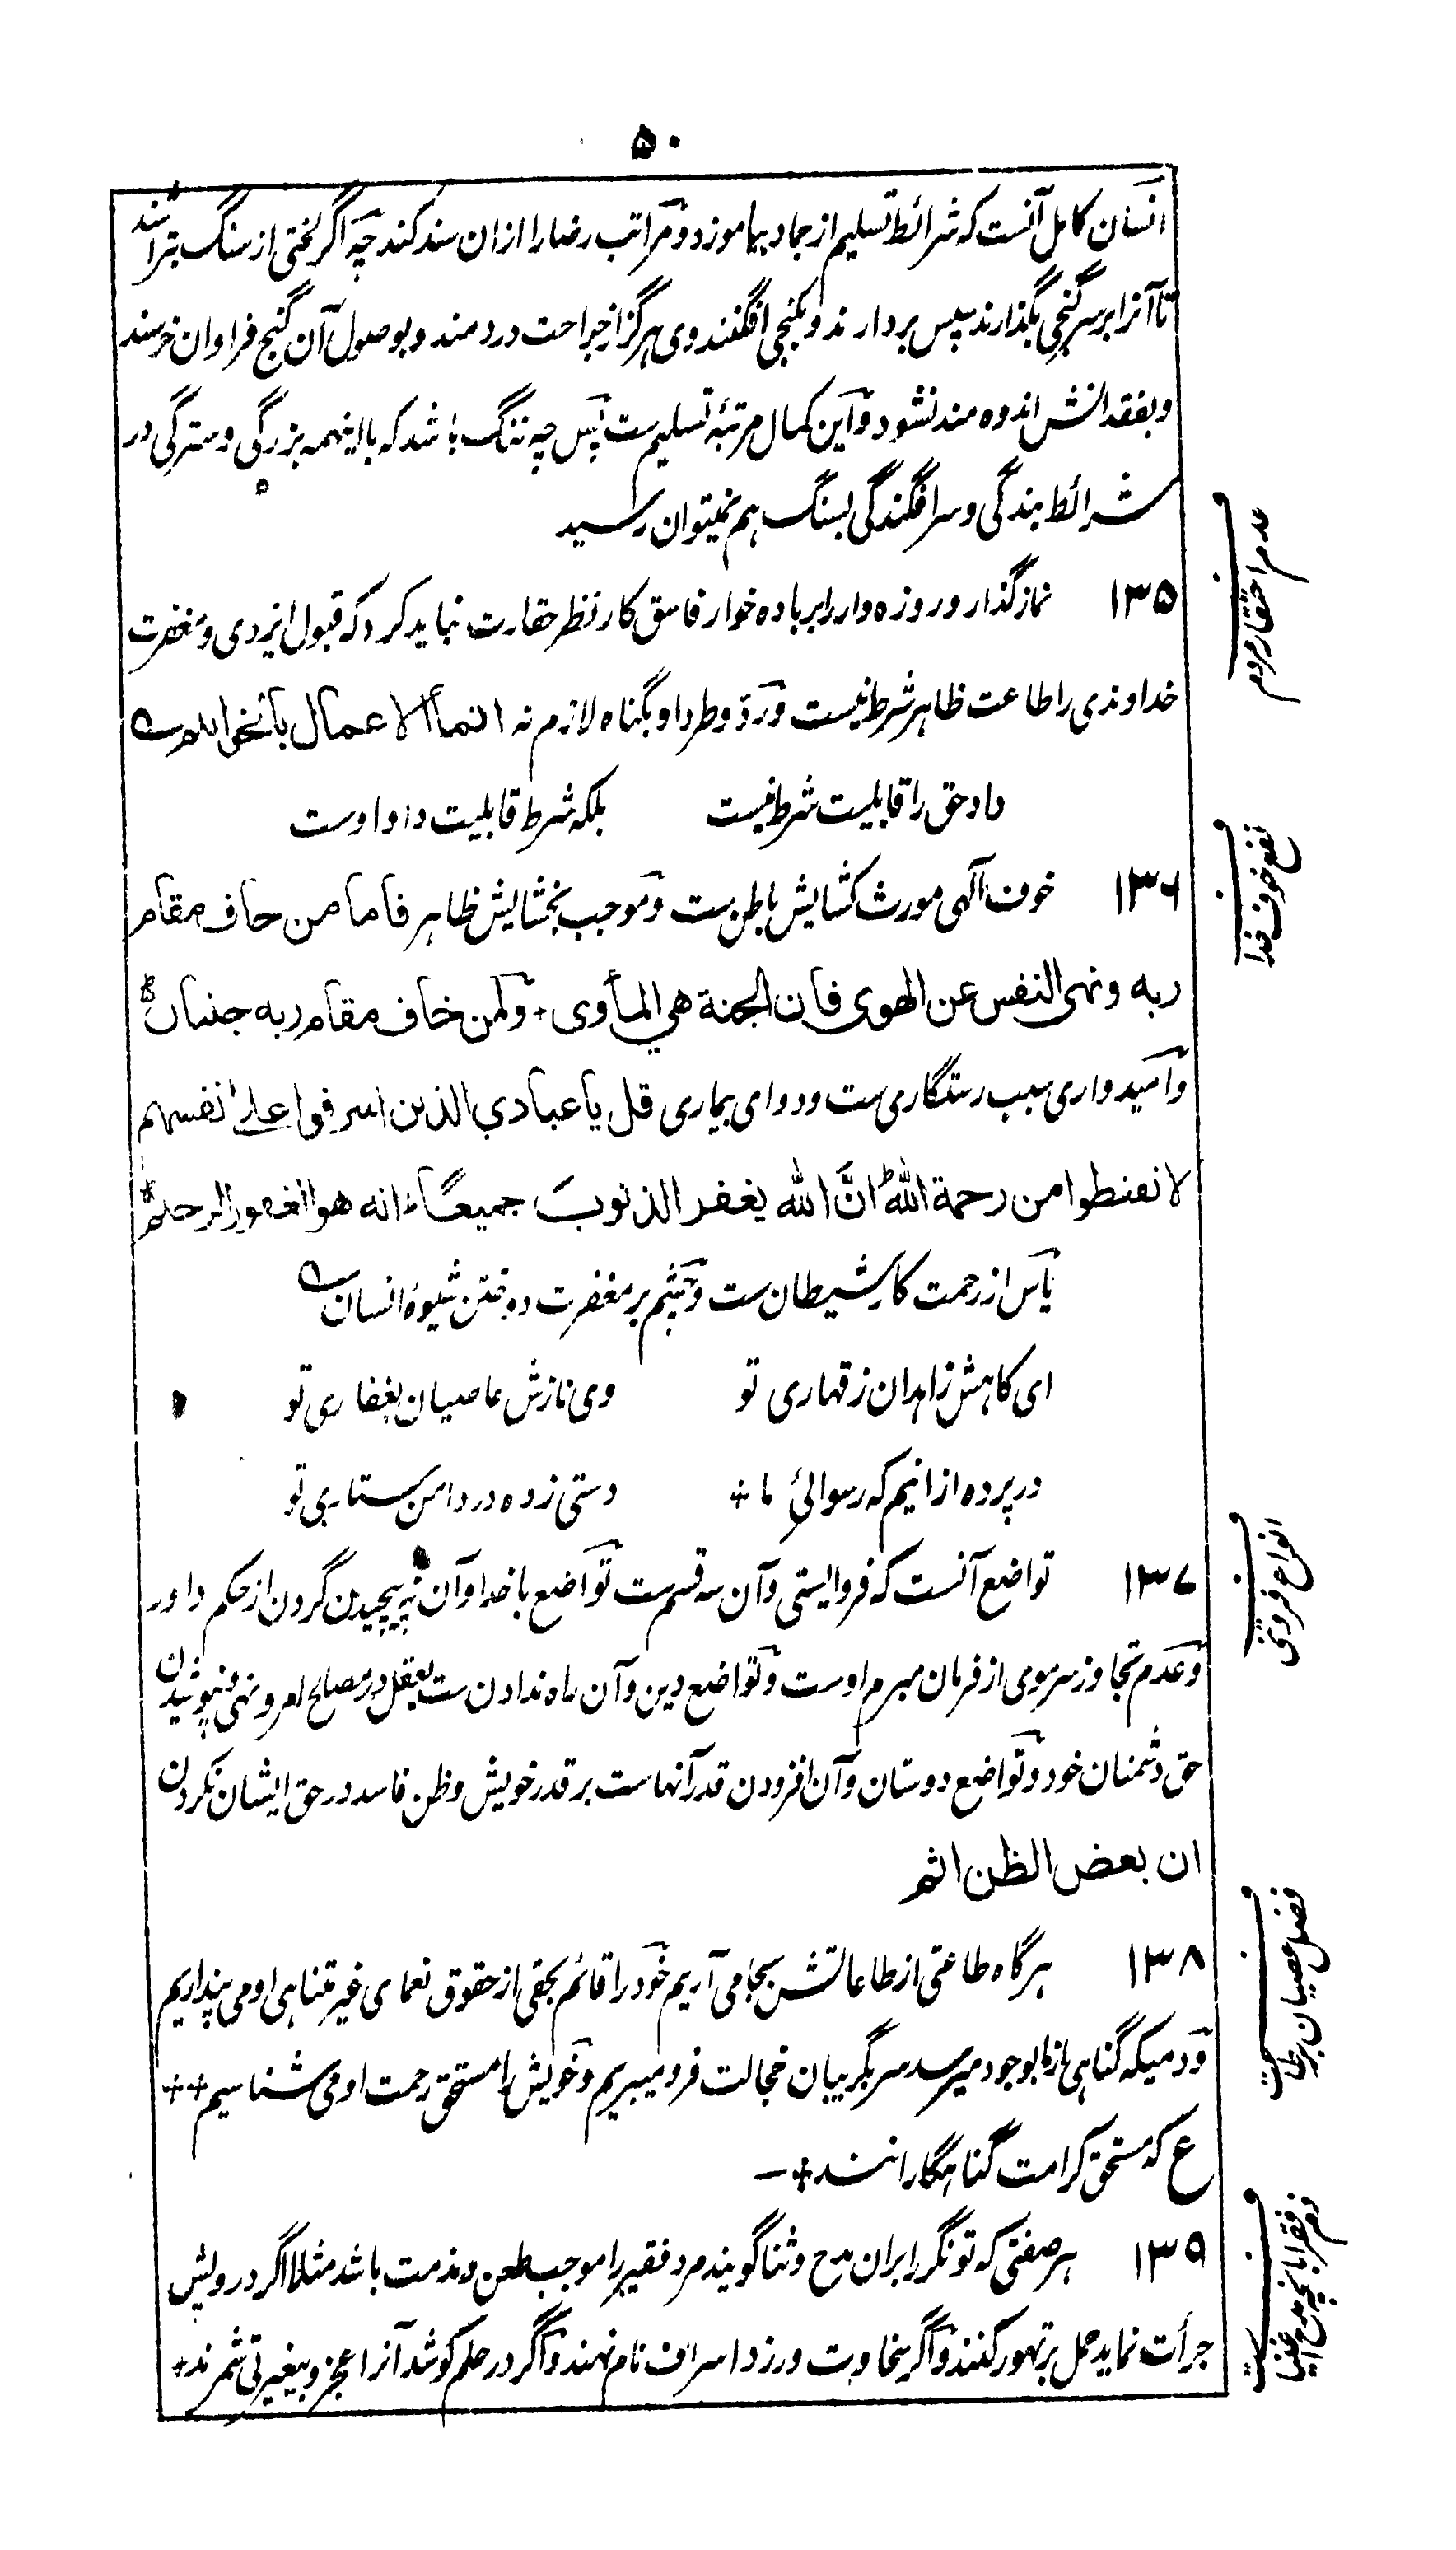 ۵۰
انسان کامل آنست که شرائط تسلیم از جماد بیاموزد و مراتب رضا را ازان سند کند چه اگر لختی از سنگ بتراشند
تا آنرا بر سر گنجی بگذارند سپس بردارند و بکنجی افگنند وی هرگز از جراحت دردمند و بوصول آن گنج فراوان خرسند
و بفقدانش اندوه مند نشود و این کمال مرتبهٔ تسلیم ست پس چه ننگ باشد که با اینهمه بزرگی و سترگی در
شرائط بندگی و سرافگندگی بسنگ هم نمیتوان رسید
عدم احتقار مردم
۱۳۵ نمازگذار و روزه دار را بر باده خوار فاسق کار نظر حقارت نباید کرد که قبول ایزدی و مغفرت
خداوندی را طاعت ظاهر شرط نیست و رد و طرد او بگناه لازم نه انما الاعمال بالخواتیم
داد حق را قابلیت شرط نیست بلکه شرط قابلیت داد اوست
نفع خوف خدا
۱۳۶ خوف الٰهی مورث کشایش باطن ست و موجب بخشایش ظاهر فاما من خاف مقام
ربه ونهی النفس عن الهوی فان الجنة هی المأوی + ولمن خاف مقام ربه جنتان
و امیدواری سبب رستگاری ست و دوای بیماری قل یا عبادی الذین اسرفوا علی انفسهم
لا تقنطوا من رحمة الله ان الله یغفر الذنوب جمیعا انه هو الغفور الرحیم
یأس از رحمت کار شیطان ست و چشم بر مغفرت دوختن شیوهٔ انسان
ای کاهش زاهدان ز قهاری تو وی نازش عاصیان بغفاری تو
در پرده ازانیم که رسوائی ما + دستی زده در دامن ستاری تو
انواع فروتنی
۱۳۷ تواضع آنست که فروایستی و آن سه قسم ست تواضع با خدا و آن نه پیچیدن گردن از حکم داور
و عدم تجاوز سرموی از فرمان مبرم اوست و تواضع دین و آن راه ندادن ست بعقل در مصالح امر و نهی و نپوشیدن
حق دشمنان خود و تواضع دوستان و آن افزودن قدر آنهاست بر قدر خویش و ظن فاسد در حق ایشان نکردن
ان بعض الظن اثم
فضل عصیان بر طاعت
۱۳۸ هرگاه طاعتی از طاعاتش بجا می آریم خود را قائم بحقی از حقوق نعمای غیر متناهی او می پنداریم
و دمیکه گناهی از ما بوجود میرسد سر بگریبان خجالت فرو میبریم و خویش را مستحق رحمت او می شناسیم ++
ع که مستحق کرامت گناهگارانند + —
ذم فقرا بآنچه مدح اغنیاست
۱۳۹ هر صفتی که تونگر را بران مدح و ثنا گویند مرد فقیر را موجب طعن و مذمت باشد مثلا اگر درویش
جرأت نماید حمل بر تهور کنند و اگر سخاوت ورزد اسراف نام نهند و اگر در حلم کوشد آنرا عجز و بیغیرتی شمرند +